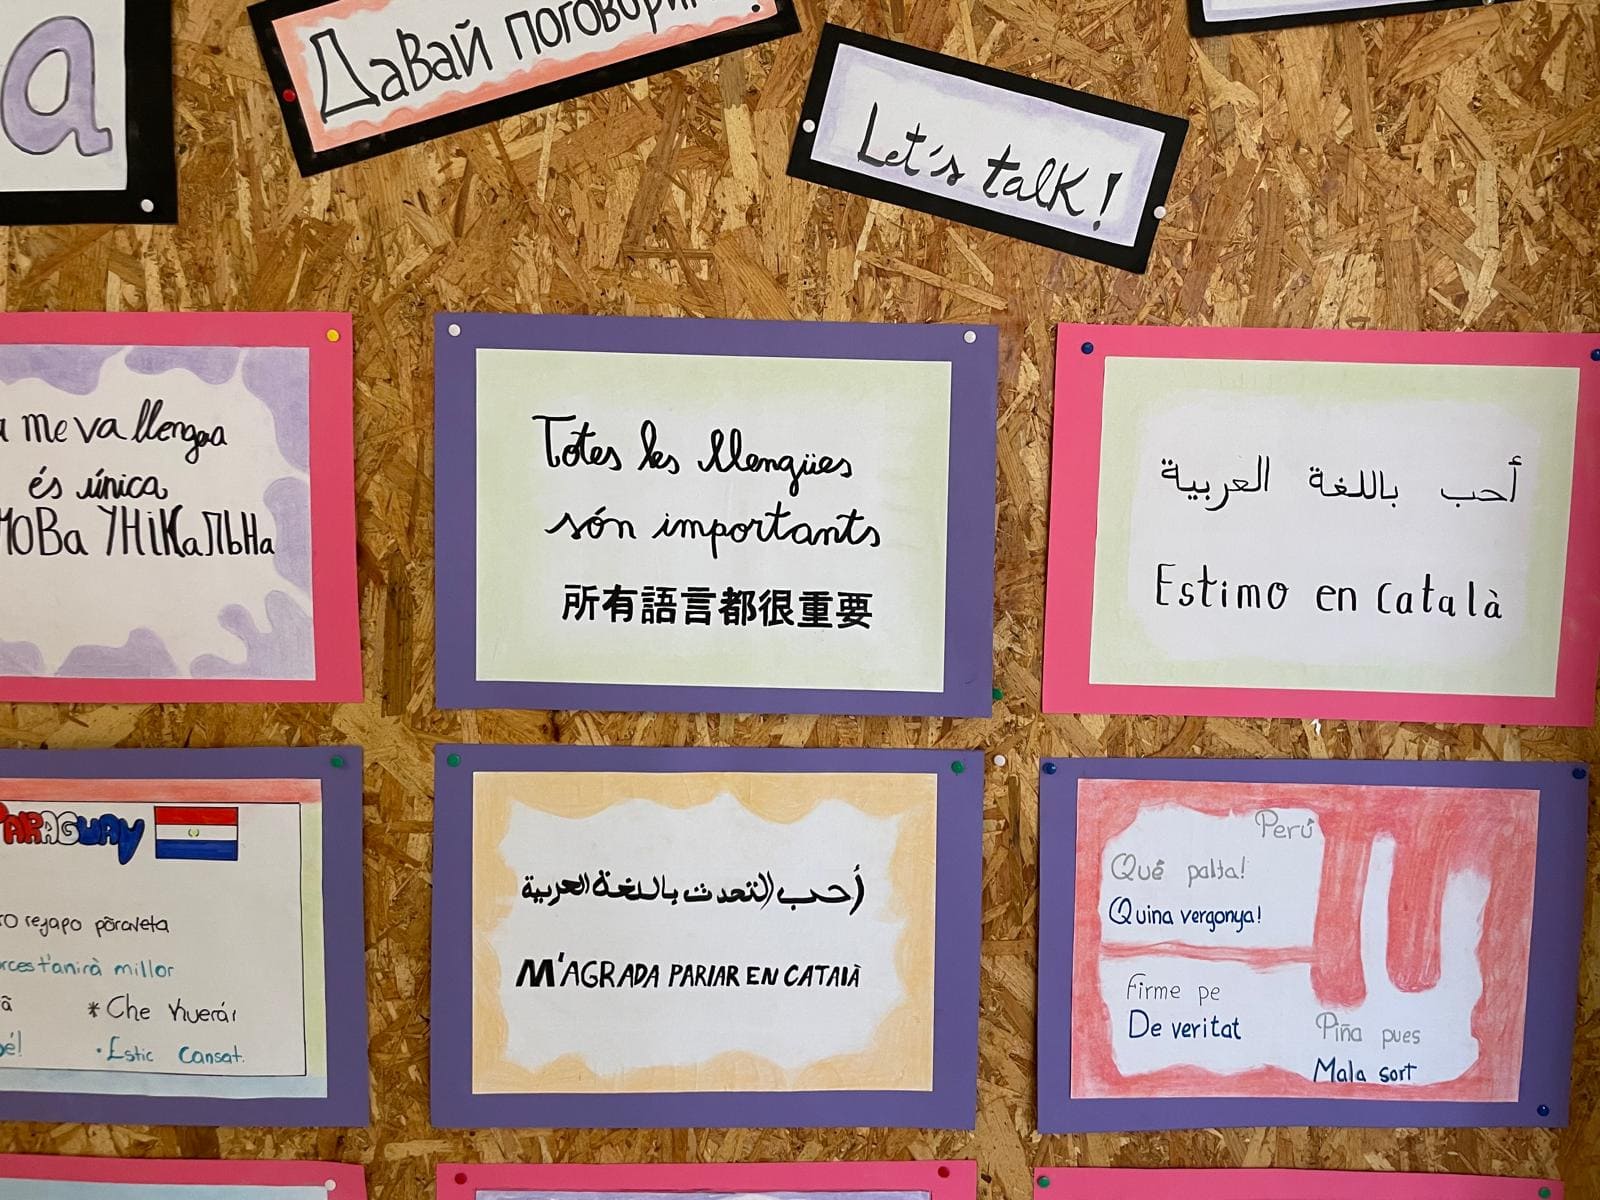 a
Давай поговорим!
Let's talk!
me va llengua
és única
мова унікальна
Totes les llengües
són importants
所有語言都很重要
أحب باللغة العربية
Estimo en català
PARAGUAY
rejapo põraveta
millor
* Che Kuerái
• Estic cansat.
أحب التحدث باللغة العربية
M'AGRADA PARLAR EN CATALÀ
Perú
Qué palta!
Quina vergonya!
Firme pe
De veritat
Piña pues
Mala sort